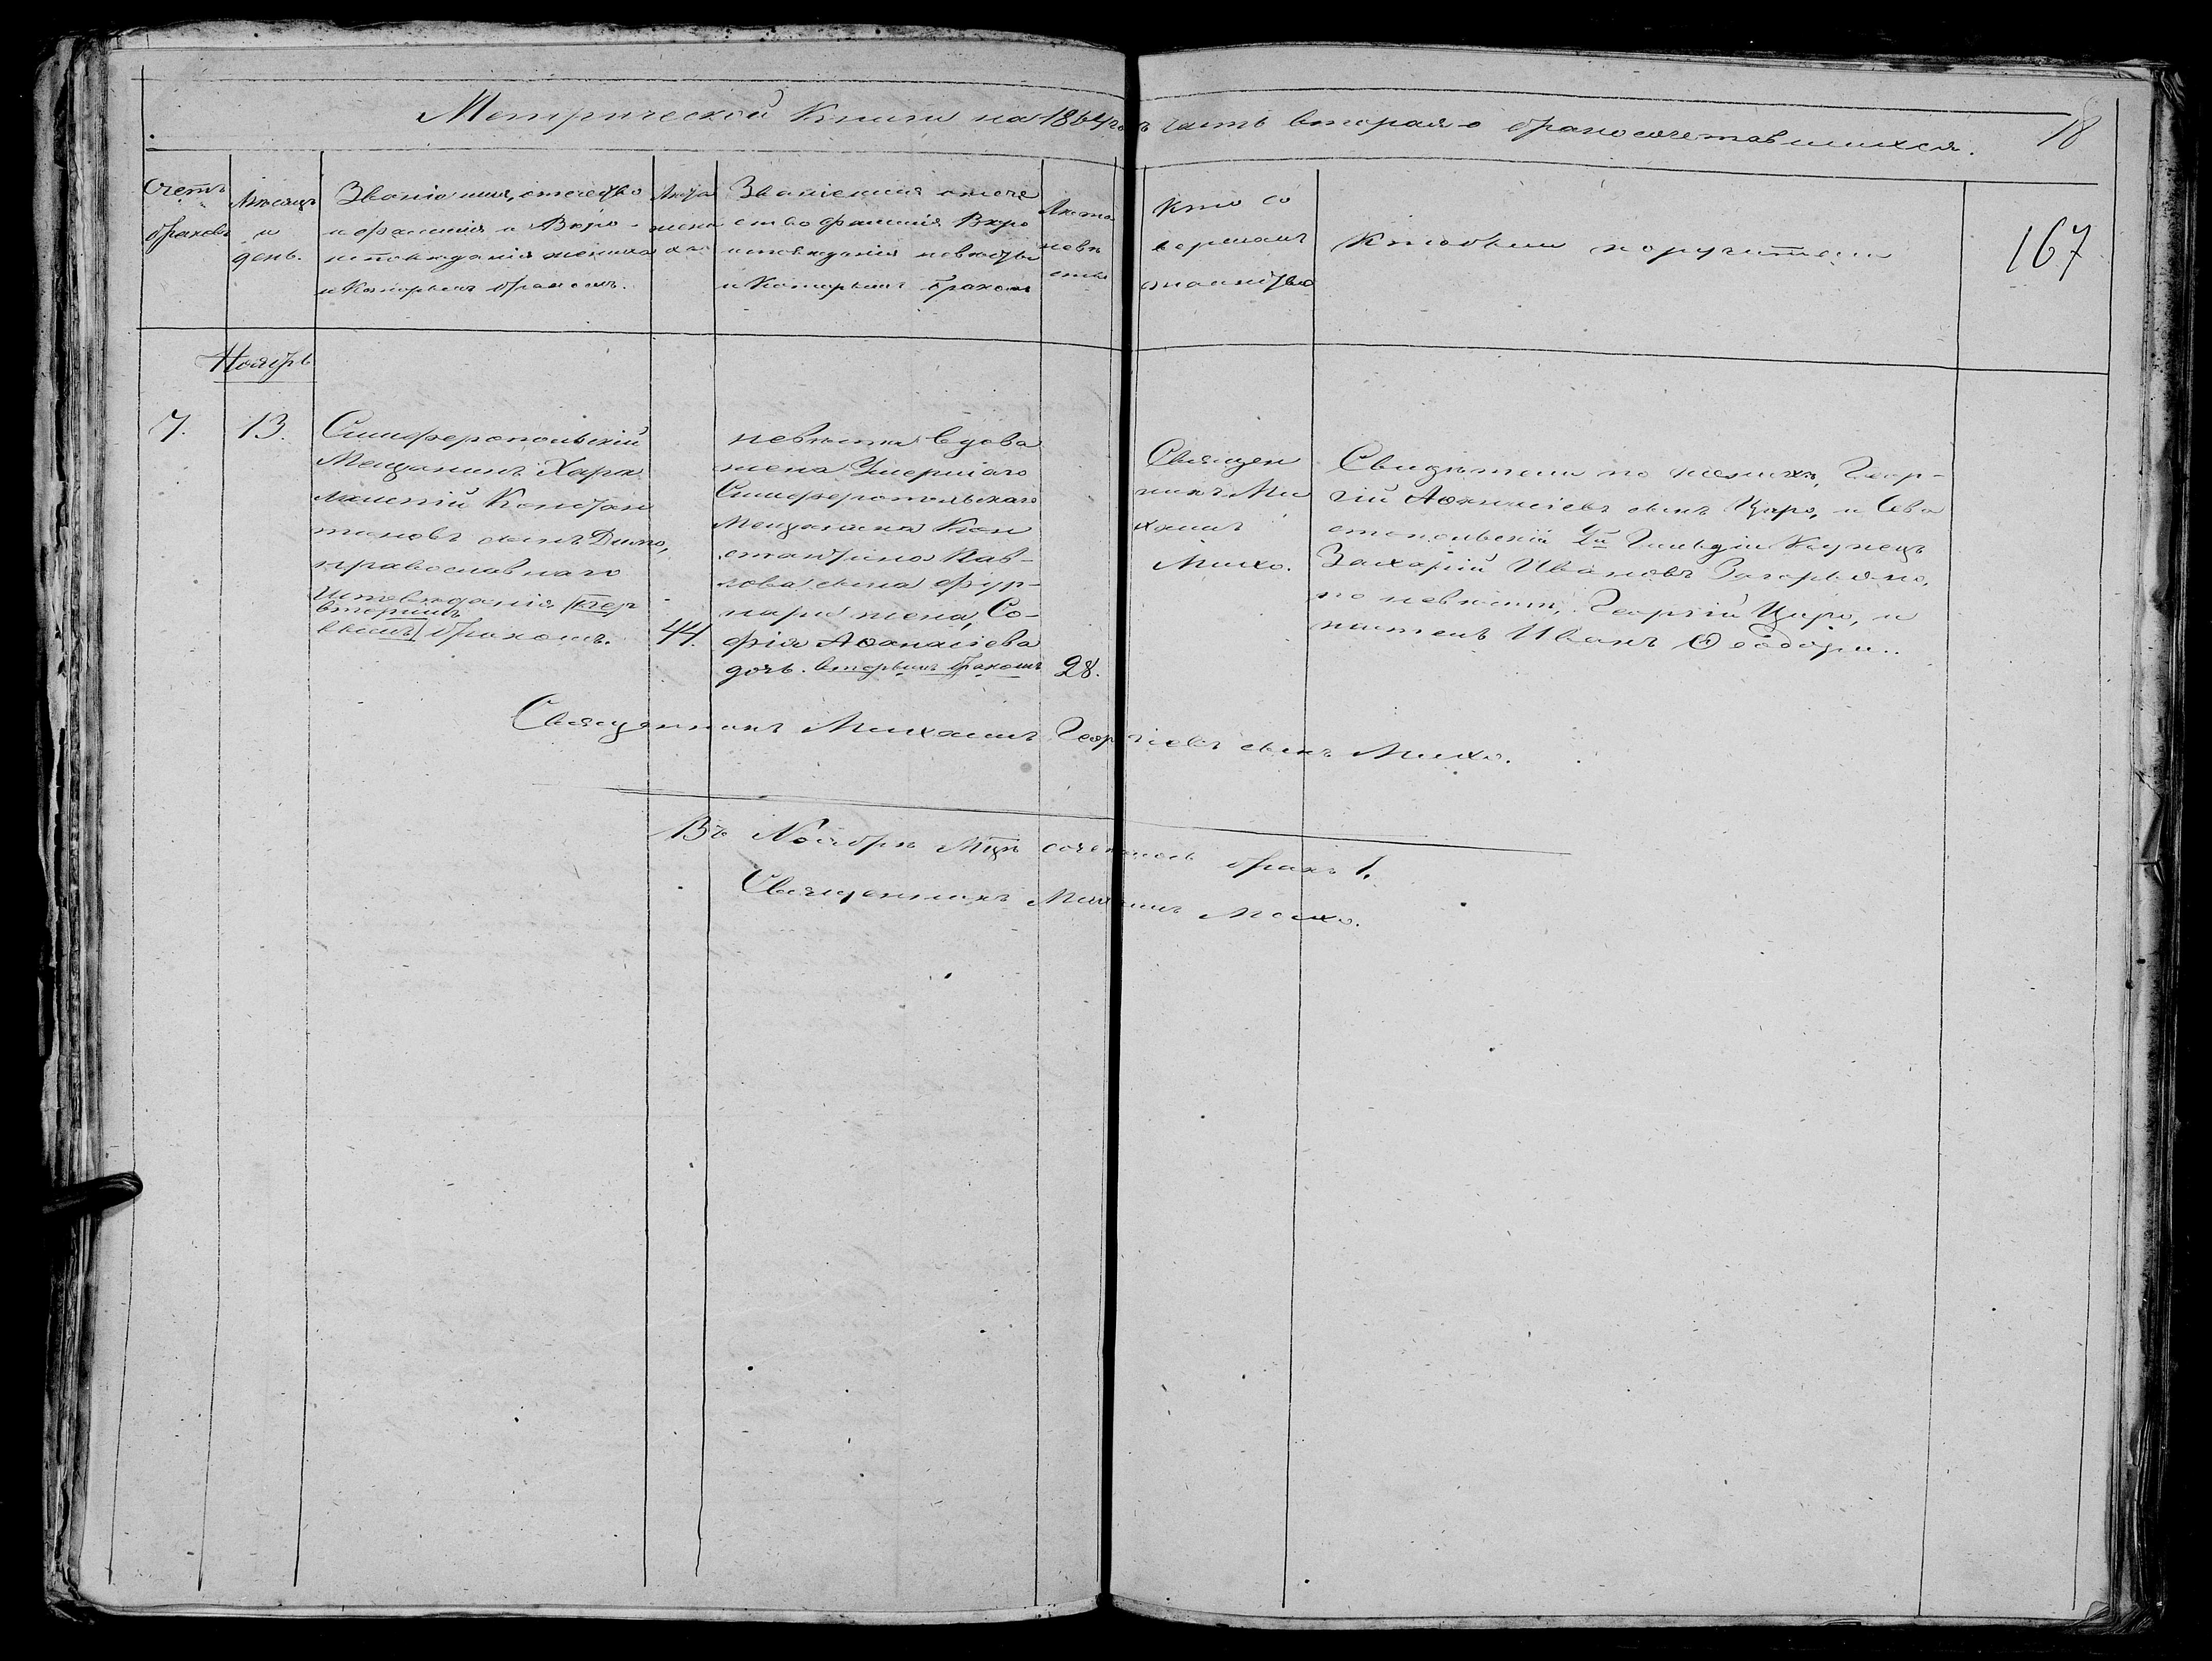 Метрической Книги на 1864 годъ часть вторая о бракосочетавшихся.
18
Счетъ
браковъ
Мѣсяцъ
и
день.
Званіе имя, отечество
и фамилія и Вѣро-
исповѣданія жениха
и Которымъ бракомъ.
Лѣта
жени
ха
Званіе имя отече
ство фамилія Вѣро
исповѣданія невѣсты
и Которымъ бракомъ
Лѣта
невѣ
сты
Кто со
вершалъ
таинство
Кто были поручители
167
Ноябрь
7.
13.
Симферопольскій
Мещанинъ Хара
лампій Констан
тиновъ сынъ Димо,
православнаго
Исповѣданія пер
вторымъ
вымъ бракомъ.
44.
невѣста вдова
жена Умершаго
Симферопольскаго
Мещанина Кон
стантина Пав-
лова сына Фур-
нари жена, Со-
фія Аѳанасіева
дочь. вторымъ бракомъ
28.
Священ
никъ Ми
хаилъ
Михо.
Свидѣтели по женихѣ, Геор-
гій Аѳанасіевъ сынъ Циро, и Сева
стопольскій 2й Гильдіи Купецъ
Захарій Ивановъ
по невѣсти, Георгій Циро, и
Иванъ Ѳеодори..
Священникъ Михаилъ Георгіевъ сынъ Михо.
Въ Ноябрѣ Мцѣ бракъ 1.
Священникъ Михаилъ Михо.